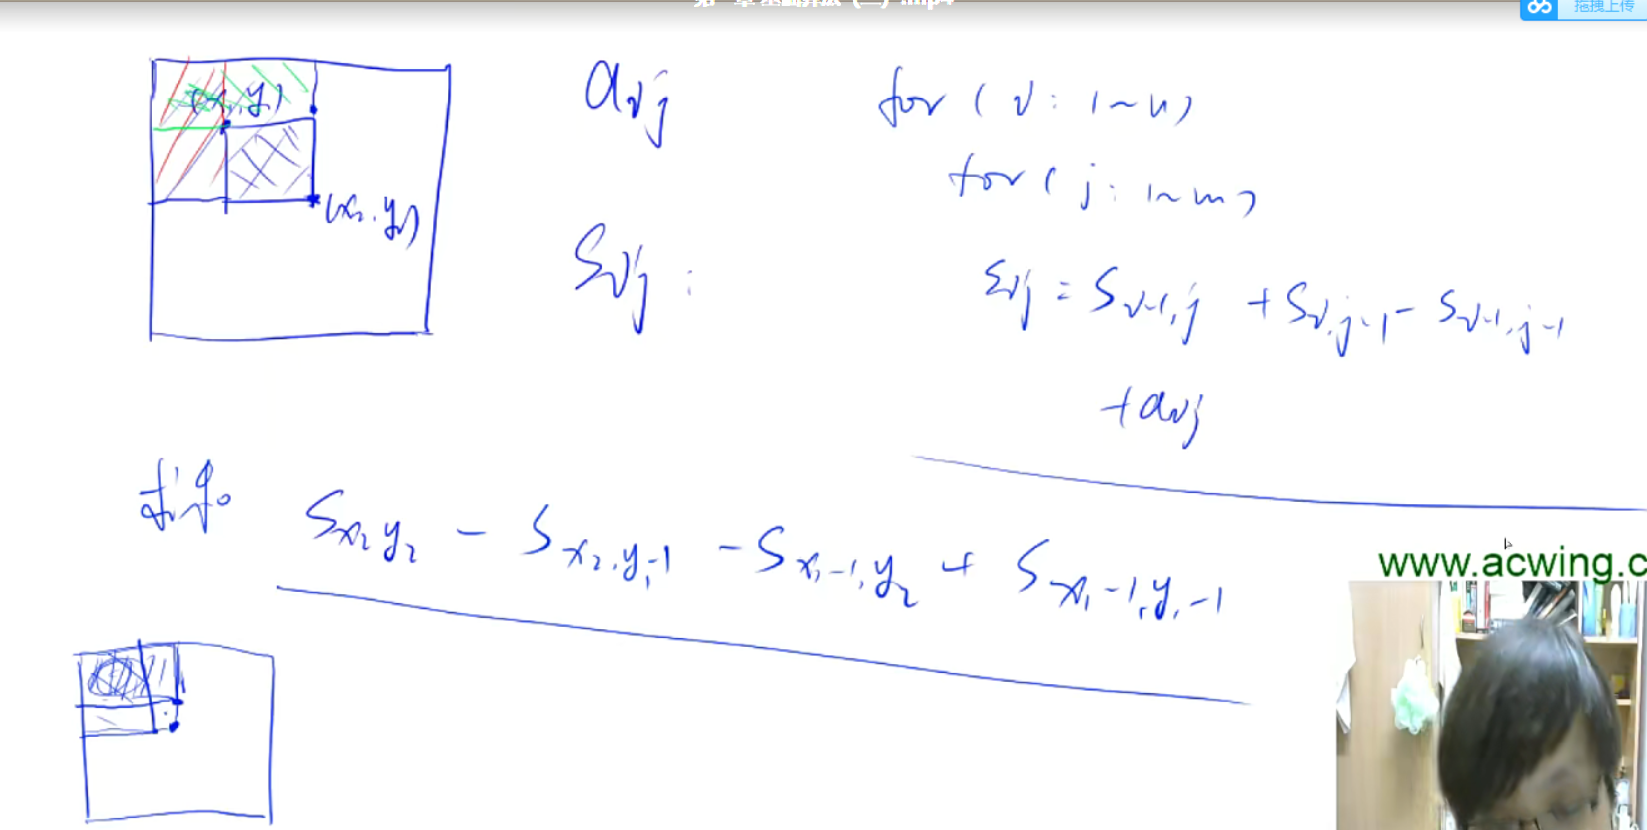 拖拽上传
(x₁,y₁)
a_{ij}
for ( i : 1~n)
for ( j : 1~m)
(x₂,y₂)
S_{ij} :
S_{ij} = S_{i-1,j} + S_{i,j-1} - S_{i-1,j-1}
+ a_{ij}
S_{x₂y₂} - S_{x₂,y₁-1} - S_{x₁-1,y₂} + S_{x₁-1,y₁-1}
www.acwing.c